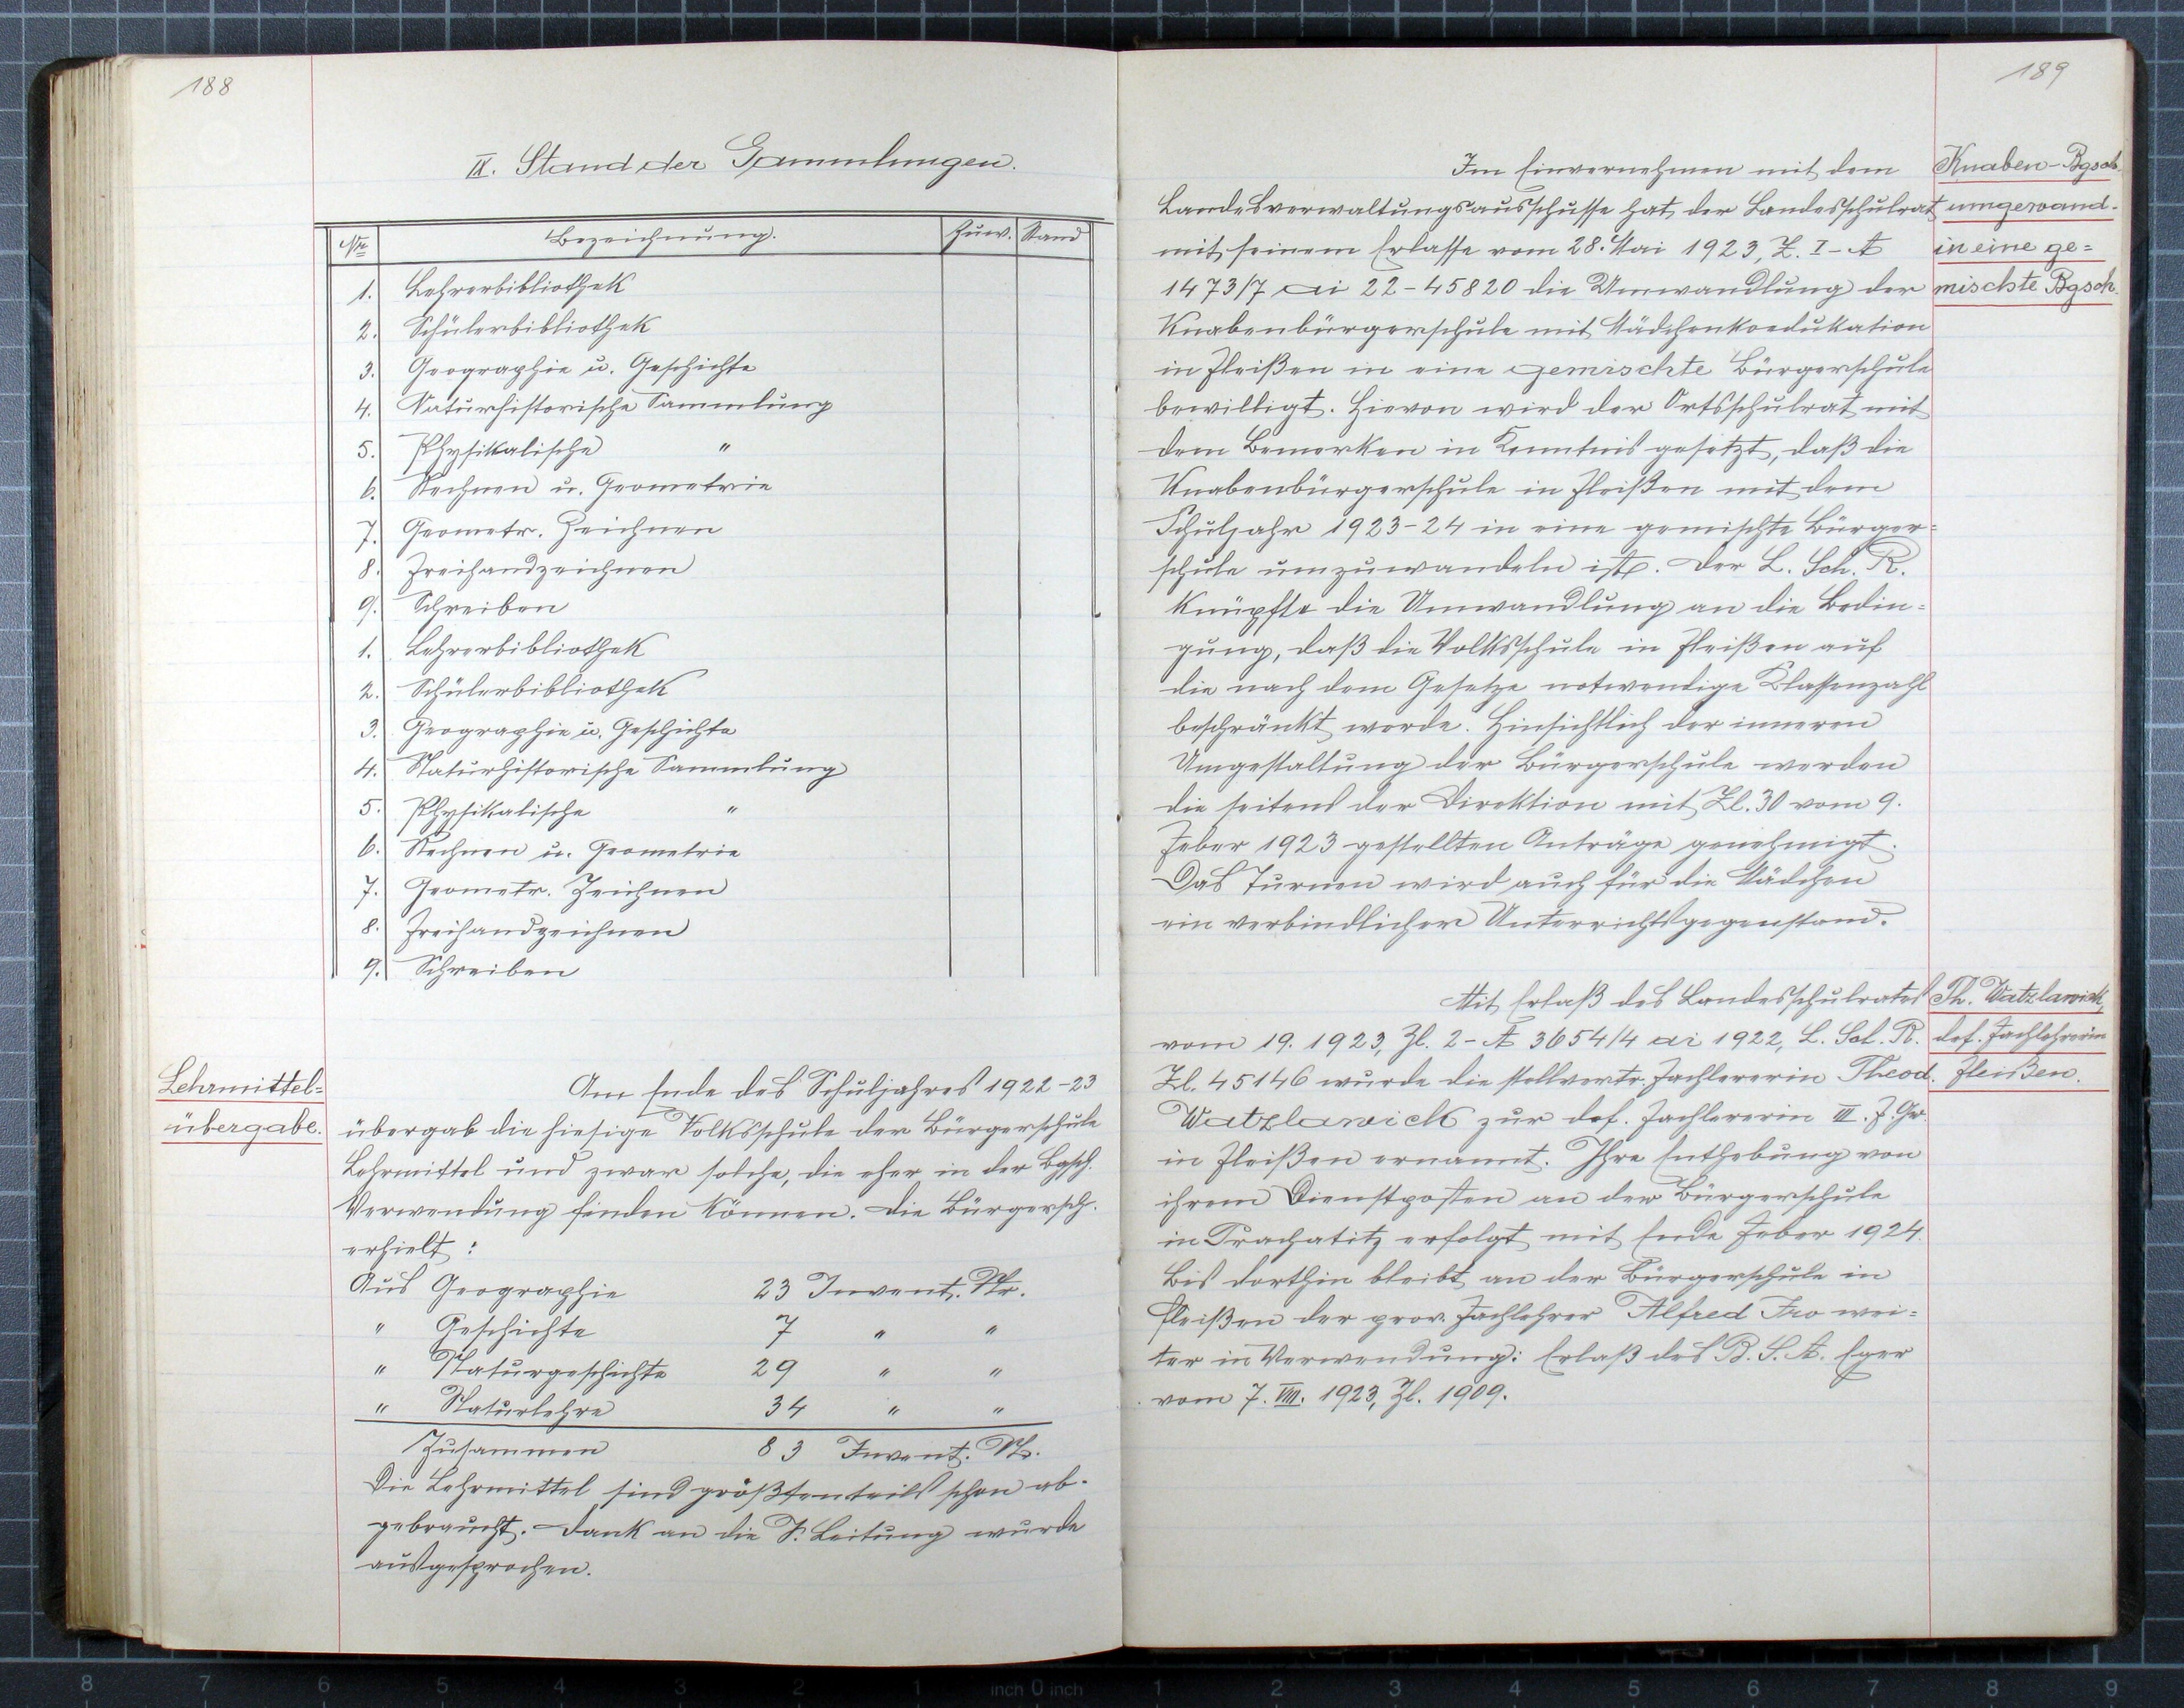 188
IX. Stand der Sammlungen.
Nr. Bezeichnung. Zuw. Stand
1. Lehrerbibliothek
2. Schülerbibliothek
3. Geographie u. Geschichte
4. Naturhistorische Sammlung
5. Physikalische "
6. Rechnen u. Geometrie
7. Geometr. Zeichnen
8. Freihandzeichnen
9. Schreiben
1. Lehrerbibliothek
2. Schülerbibliothek
3. Geographie u. Geschichte
4. Naturhistorische Sammlung
5. Physikalische "
6. Rechnen u. Geometrie
7. Geometr. Zeichnen
8. Freihandzeichnen
9. Schreiben
Lehrmittel=
übergabe.
Am Ende des Schuljahres 1922-23
übergab die hiesige Volksschule der Bürgerschule
Lehrmittel und zwar solche, die eher in der Bgsch.
Verwendung finden können. Die Bürgersch.
erhielt:
Aus Geographie 23 Invent. Nr.
" Geschichte 7 " "
" Naturgeschichte 29 " "
" Naturlehre 34 " "
Zusammen 83 Invent. Nr.
Die Lehrmittel sind größtenteils schon ab-
gebraucht. - Dank an die V. Leitung wurde
ausgesprochen.
189
Im Einvernehmen mit dem
Landesverwaltungsausschusse hat der Landesschulrat
mit seinem Erlasse vom 28. Mai 1923, Z. I-A
1473/7 ai 22-45820 die Umwandlung der
Knabenbürgerschule mit Mädchenkoedukation
in Fleißen in eine gemischte Bürgerschule
bewilligt. Hievon wird der Ortsschulrat mit
dem Bemerken in Kenntnis gesetzt, daß die
Knabenbürgerschule in Fleißen mit dem
Schuljahr 1923-24 in eine gemischte Bürger=
schule umzuwandeln ist. Der L. Sch. R.
knüpfte die Umwandlung an die Bedin=
gung, daß die Volksschule in Fleißen auf
die nach dem Gesetze notwendige Klassenzahl
beschränkt werde. Hinsichtlich der inneren
Umgestaltung der Bürgerschule werden
die seitens der Direktion mit Zl. 30 vom 9.
Feber 1923 gestellten Anträge genehmigt.
Das Turnen wird auch für die Mädchen
ein verbindlicher Unterrichtsgegenstand.
Knaben-Bgsch.
umgewand-
in eine ge=
mischte Bgsch.
Mit Erlaß des Landesschulrates
vom 19. 1923, Zl. 2-A 3654/4 ai 1922, L. Sch. R.
Zl. 45146 wurde die stellvertr. Fachlererin Theod.
Watzlawick zur def. Fachlererin III. F. Gr.
in Fleißen ernannt. Ihre Enthebung von
ihrem Dienstposten an der Bürgerschule
in Prachatitz erfolgt mit Ende Feber 1924.
Bis dorthin bleibt an der Bürgerschule in
Fleißen der prov. Fachlehrer Alfred Fro wei=
ter in Verwendung: Erlaß des B. S. A. Eger
vom 7. VIII. 1923, Zl. 1909.
Th. Watzlawick,
def. Fachlehrerin
Fleißen.
8 7 6 5 4 3 2 1 inch 0 inch 1 2 3 4 5 6 7 8 9